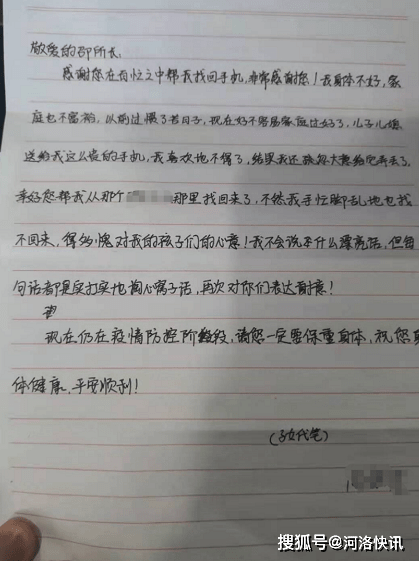 敬爱的邵所长
感谢您在百忙之中帮我找回手机，非常感谢您！我身体不好，家
庭也不富裕，以前过惯了苦日子，现在好不容易家庭过好了，儿子儿媳
送给我这么贵的手机，我喜欢地不得了，结果我还粗心大意给它弄丢了。
幸好您帮我从那个 那里找回来了，不然我手忙脚乱地也找
不回来，得多愧对我的孩子们的心意！我不会说些什么漂亮话，但每
句话都是实打实地掏心窝子话，再次对你们表达谢意！
现在仍在疫情防控阶段，请您一定要保重身体，祝您身
体健康，平安顺利！
（子女代笔）
搜狐号@河洛快讯